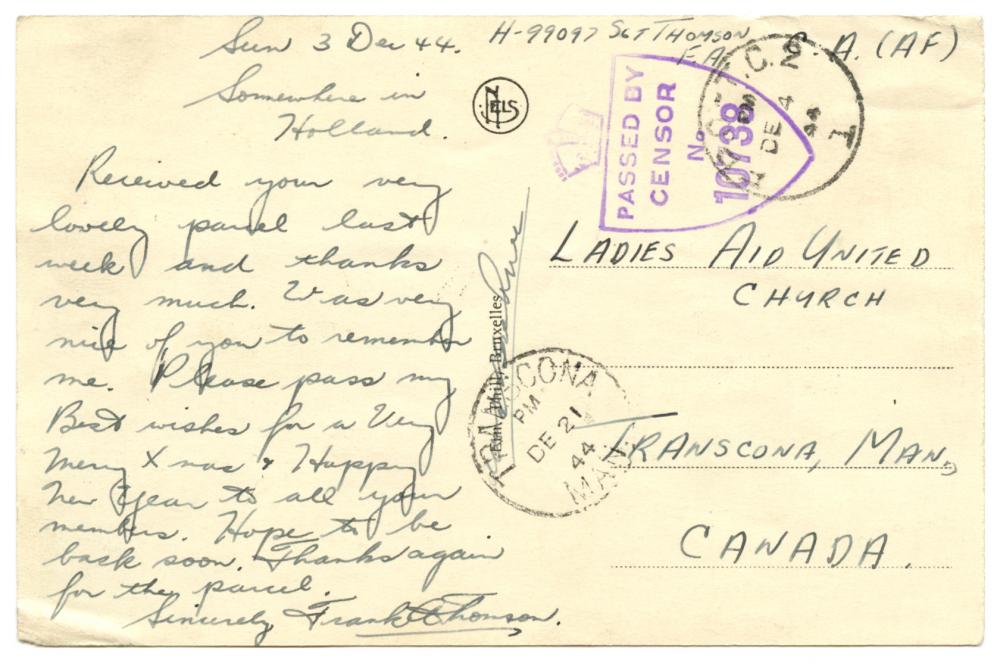 Sun 3 Dec 44.
Somewhere in
Holland.
Received your very
lovely parcel last
week and thanks
very much. Was very
nice of you to remember
me. Please pass my
Best wishes for a Very
Merry Xmas & Happy
New Year to all your
members. Hope to be
back soon. Thanks again
for the parcel.
Sincerely Frank Thomson.
H-99097 SGT THOMSON
F.A.
C.A. (AF)
NELS
PASSED BY
CENSOR
No
10738
PM
DE 4
44
1
Thill, Bruxelles
LADIES AID UNITED
CHURCH
TRANSCONA, MAN,
CANADA.
TRANSCONA
PM
DE 21
44
MAN.